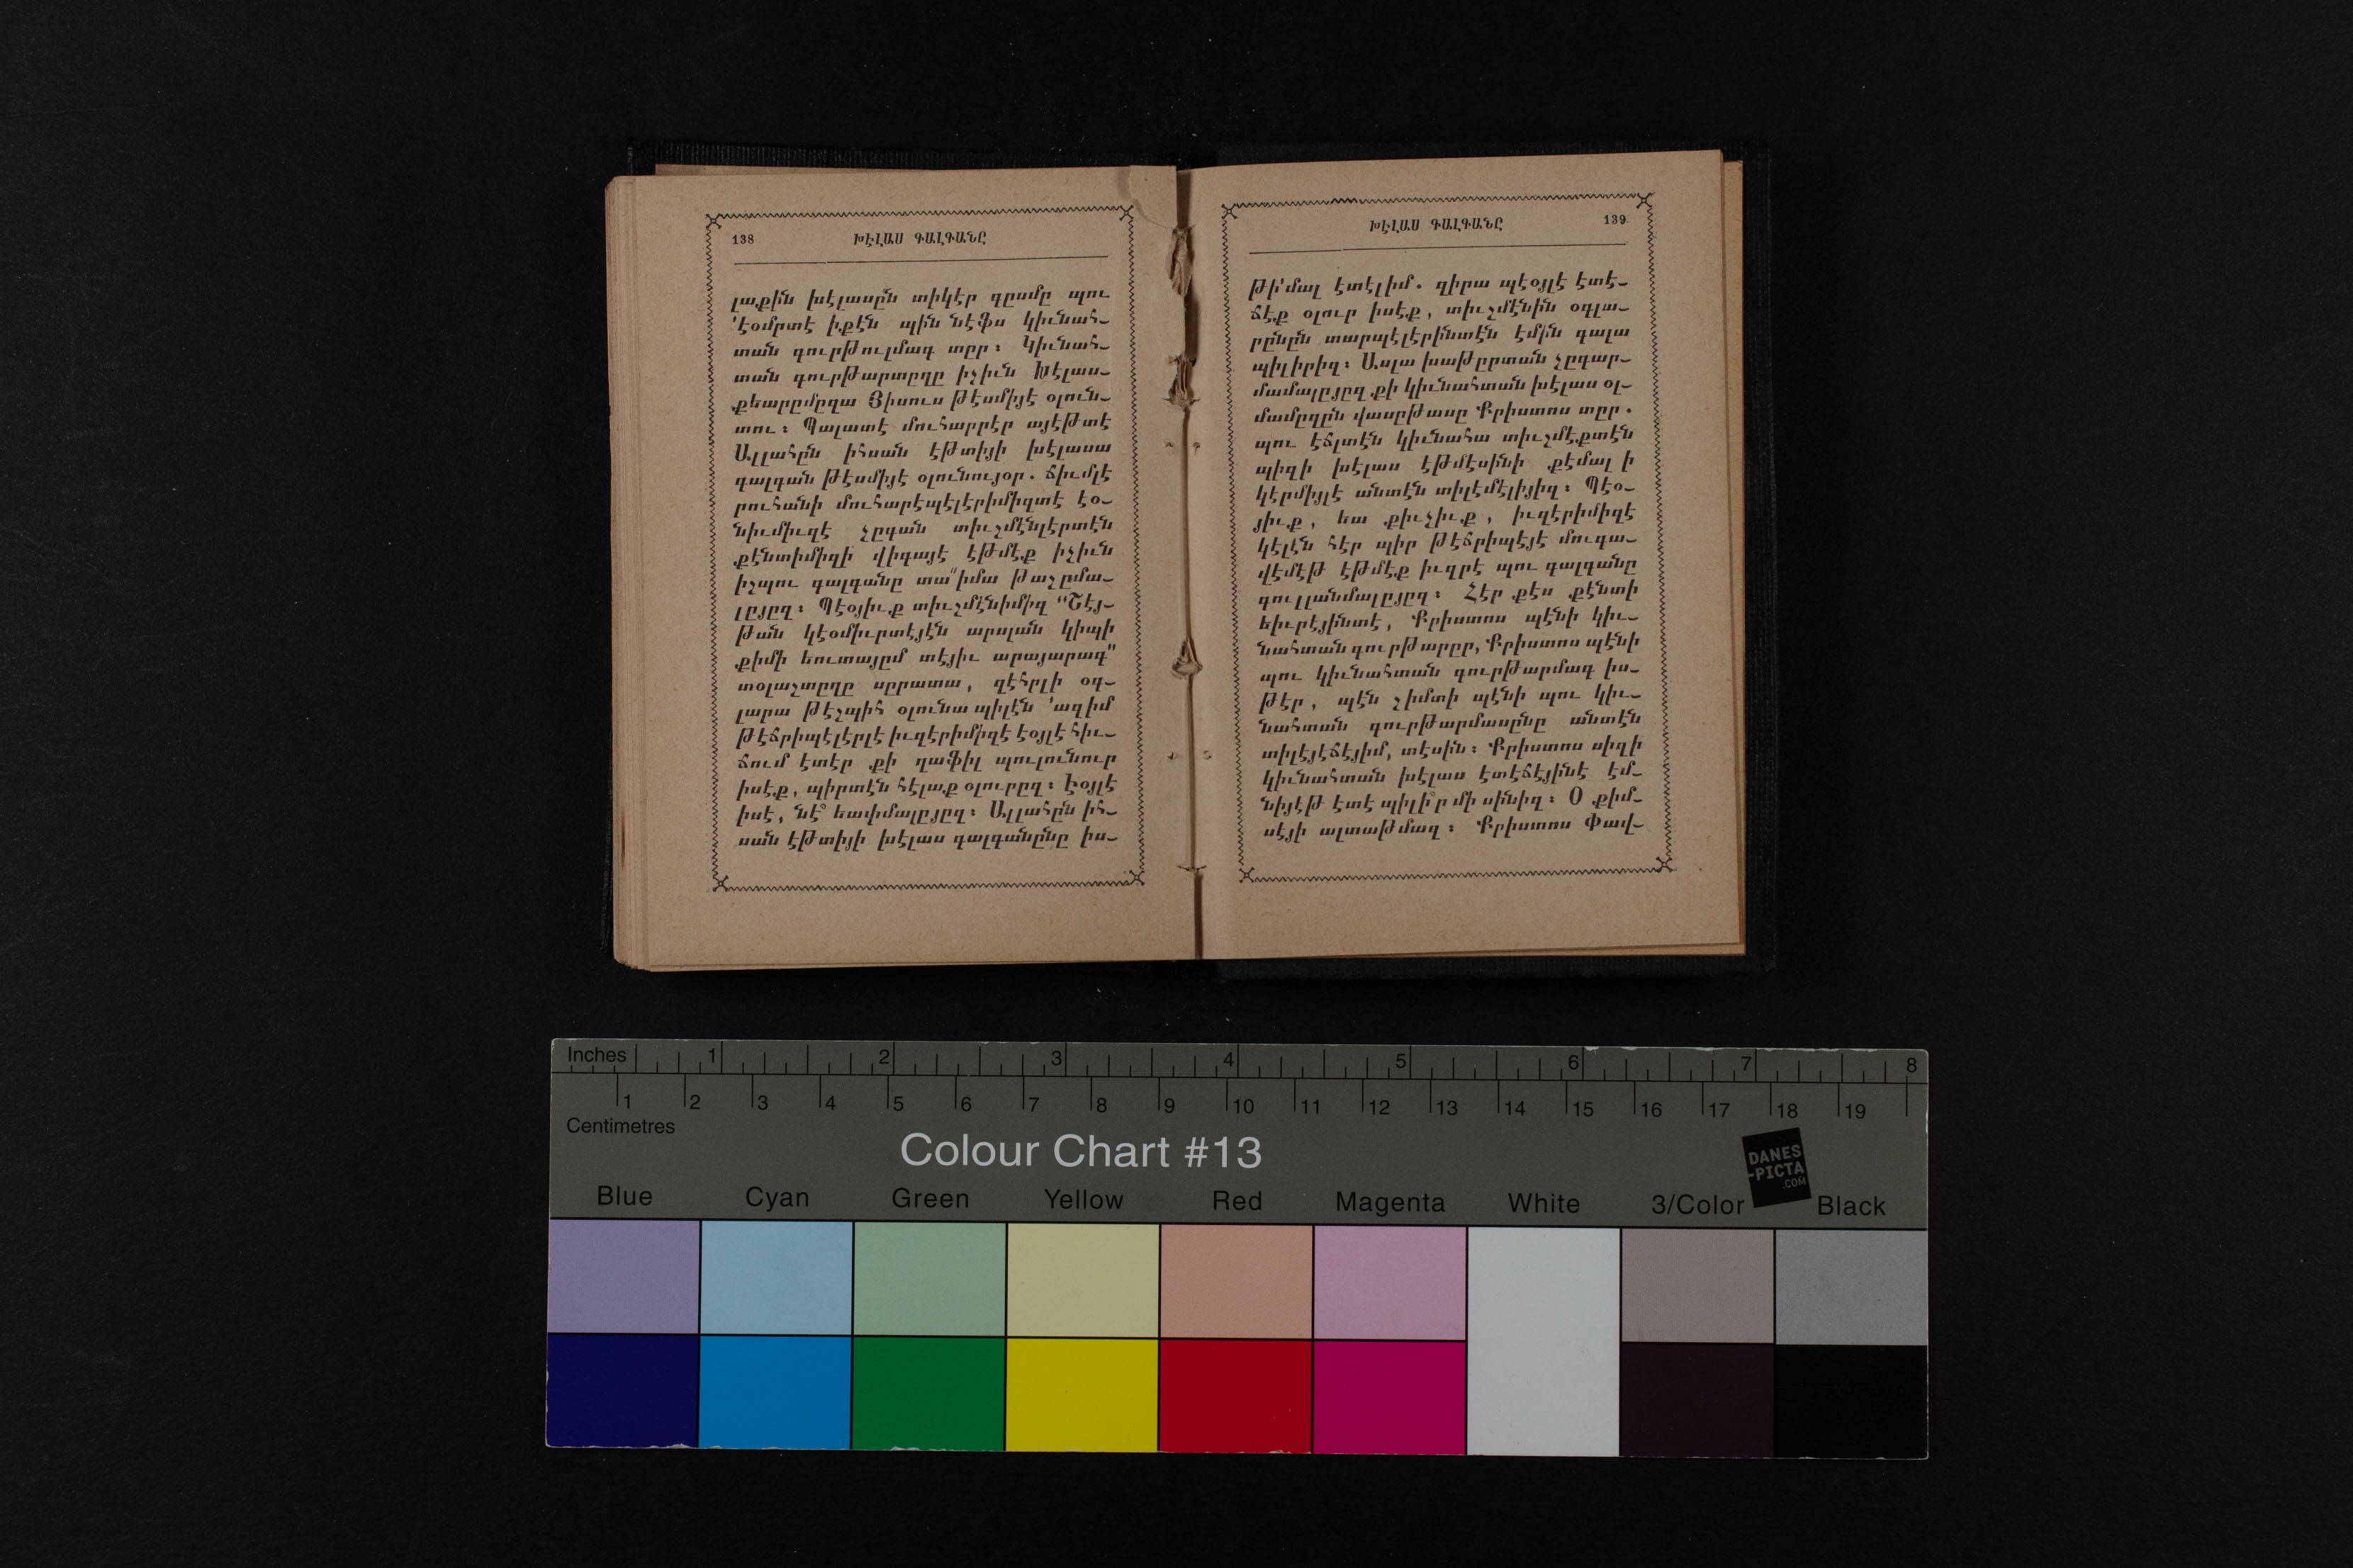 138 ԽԷԼԱՍ ԳԱԼԳԱՆԸ
լաքին խէլասըն տիկէր գըսմը պու
՚էօմրտէ իքէն պին նէֆս կիւնահ-
տան գուրթուլմագ տըր։ Կիւնահ-
տան գուրթարտըղը իչիւն Խէլաս-
քեարըմըզա Յիսուս թէսմիյէ օլուն-
տու։ Պալատէ մուհարրէր այէթտէ
Ալլահըն իհսան էթտիյի խէլասա
գալգան թէսմիյէ օլունույօր. ճիւմլէ
րուհանի մուհարէպէլէրիմիզտէ էօ-
նիւմիւզէ չըգան տիւշմէնլէրտէն
քէնտիմիզի վիգայէ էթմէք իչիւն
իշպու գալգանը տա՟իմա թաշըմա-
լըյըզ։ Պէօյիւք տիւշմէնիմիզ «Շէյ-
թան կէօմիւրտէյէն արսլան կիպի
քիմի եուտայըմ տէյիւ արայարագ»
տօլաշտըղը սըրատա, զէհրլի օգ-
լարա թէշպիհ օլունա պիլէն ՚ազիմ
թէճրիպէլէրլէ իւզէրիմիզէ էօյլէ հիւ-
ճում էտէր քի ղաֆիլ պուլունուր
իսէք, պիրտէն հէլաք օլուրըզ։ Էօյլէ
իսէ, նէ՞ եափմալըյըզ։ Ալլահըն իհ-
սան էթտիյի խէլաս գալգանընը իս-
ԽԷԼԱՍ ԳԱԼԳԱՆԸ 139
թի՚մալ էտէլիմ. զիրա պէօյլէ էտէ-
ճէք օլուր իսէք, տիւշմէնին օգլա-
րընըն տարպէլէրինտէն էմին գալա
պիլիրիզ։ Ասլա խաթըրտան չըգար-
մամալըյըզ քի կիւնահտան խէլաս օլ-
մամըզըն վասըթասը Քրիստոս տըր.
պու էճլտէն կիւնահա տիւշմէքտէն
պիզի խէլաս էթմէսինի քէմալ ի
կէրմիյլէ անտէն տիլէմէլիյիզ։ Պէօ-
յիւք, եա քիւչիւք, իւզէրիմիզէ
կէլէն հէր պիր թէճրիպէյէ մուգա-
վէմէթ էթմէք իւզրէ պու գալգանը
գուլլանմալըյըզ։ Հէր քէս քէնտի
եիւրէյինտէ, Քրիստոս պէնի կիւ-
նահտան գուրթարըր, Քրիստոս պէնի
պու կիւնահտան գուրթարմագ իս-
թէր, պէն շիմտի պէնի պու կիւ-
նահտան գուրթարմասընը անտէն
տիլէյէճէյիմ, տէսին։ Քրիստոս սիզի
կիւնահտան խէլաս էտէճէյինէ էմ-
նիյէթ էտէ պիլի՞ր մի սինիզ։ Օ քիմ-
սէյի ալտաթմազ։ Քրիստոս Փավ-
Inches 1 2 3 4 5 6 7 8
1 2 3 4 5 6 7 8 9 10 11 12 13 14 15 16 17 18 19
Centimetres
Colour Chart #13
DANES
-PICTA
.COM
Blue Cyan Green Yellow Red Magenta White 3/Color Black